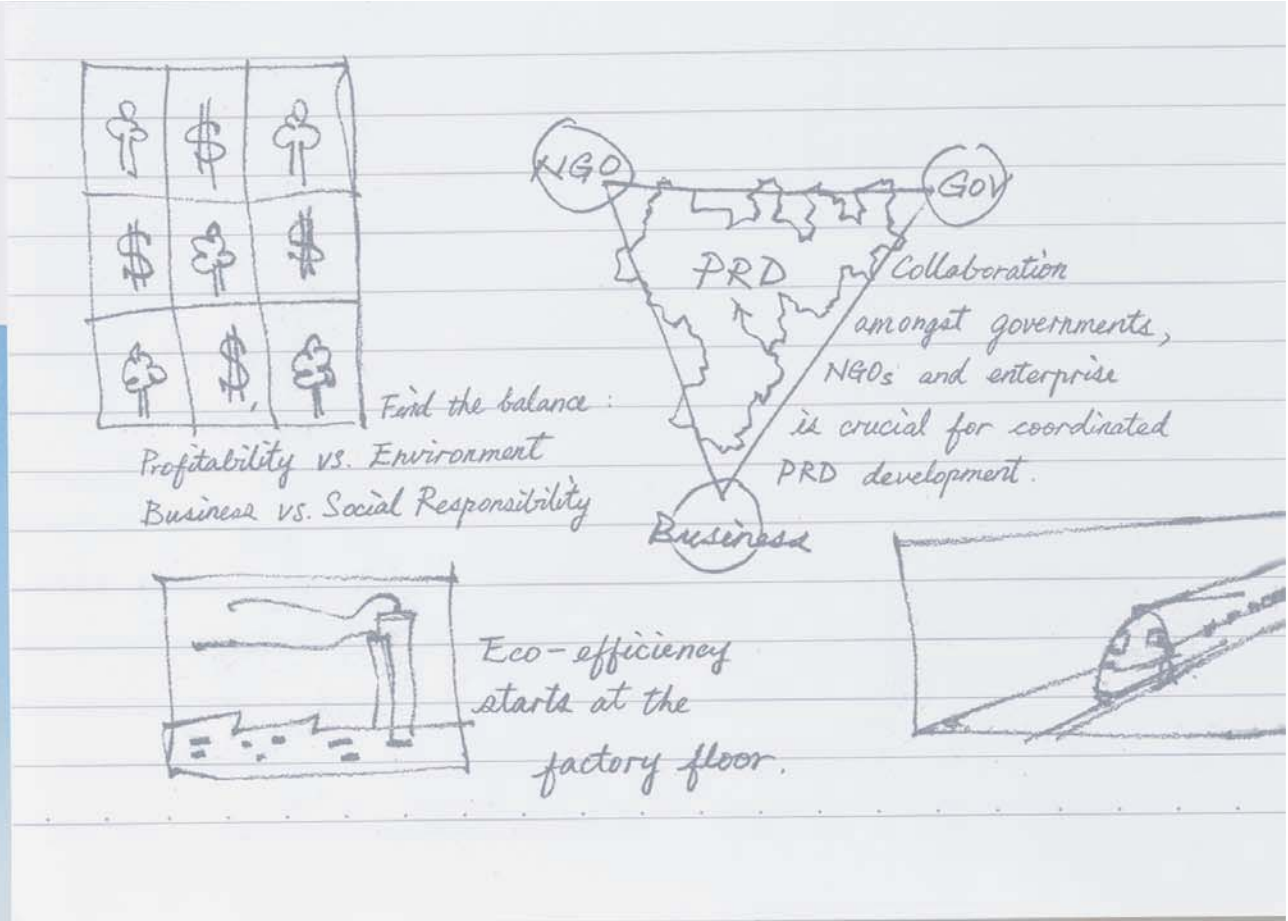 $
$ $
$
Find the balance:
Profitability vs. Environment
Business vs. Social Responsibility
NGO
GOV
PRD
Business
Collaboration
amongst governments,
NGOs and enterprise
is crucial for coordinated
PRD development.
Eco-efficiency
starts at the
factory floor.